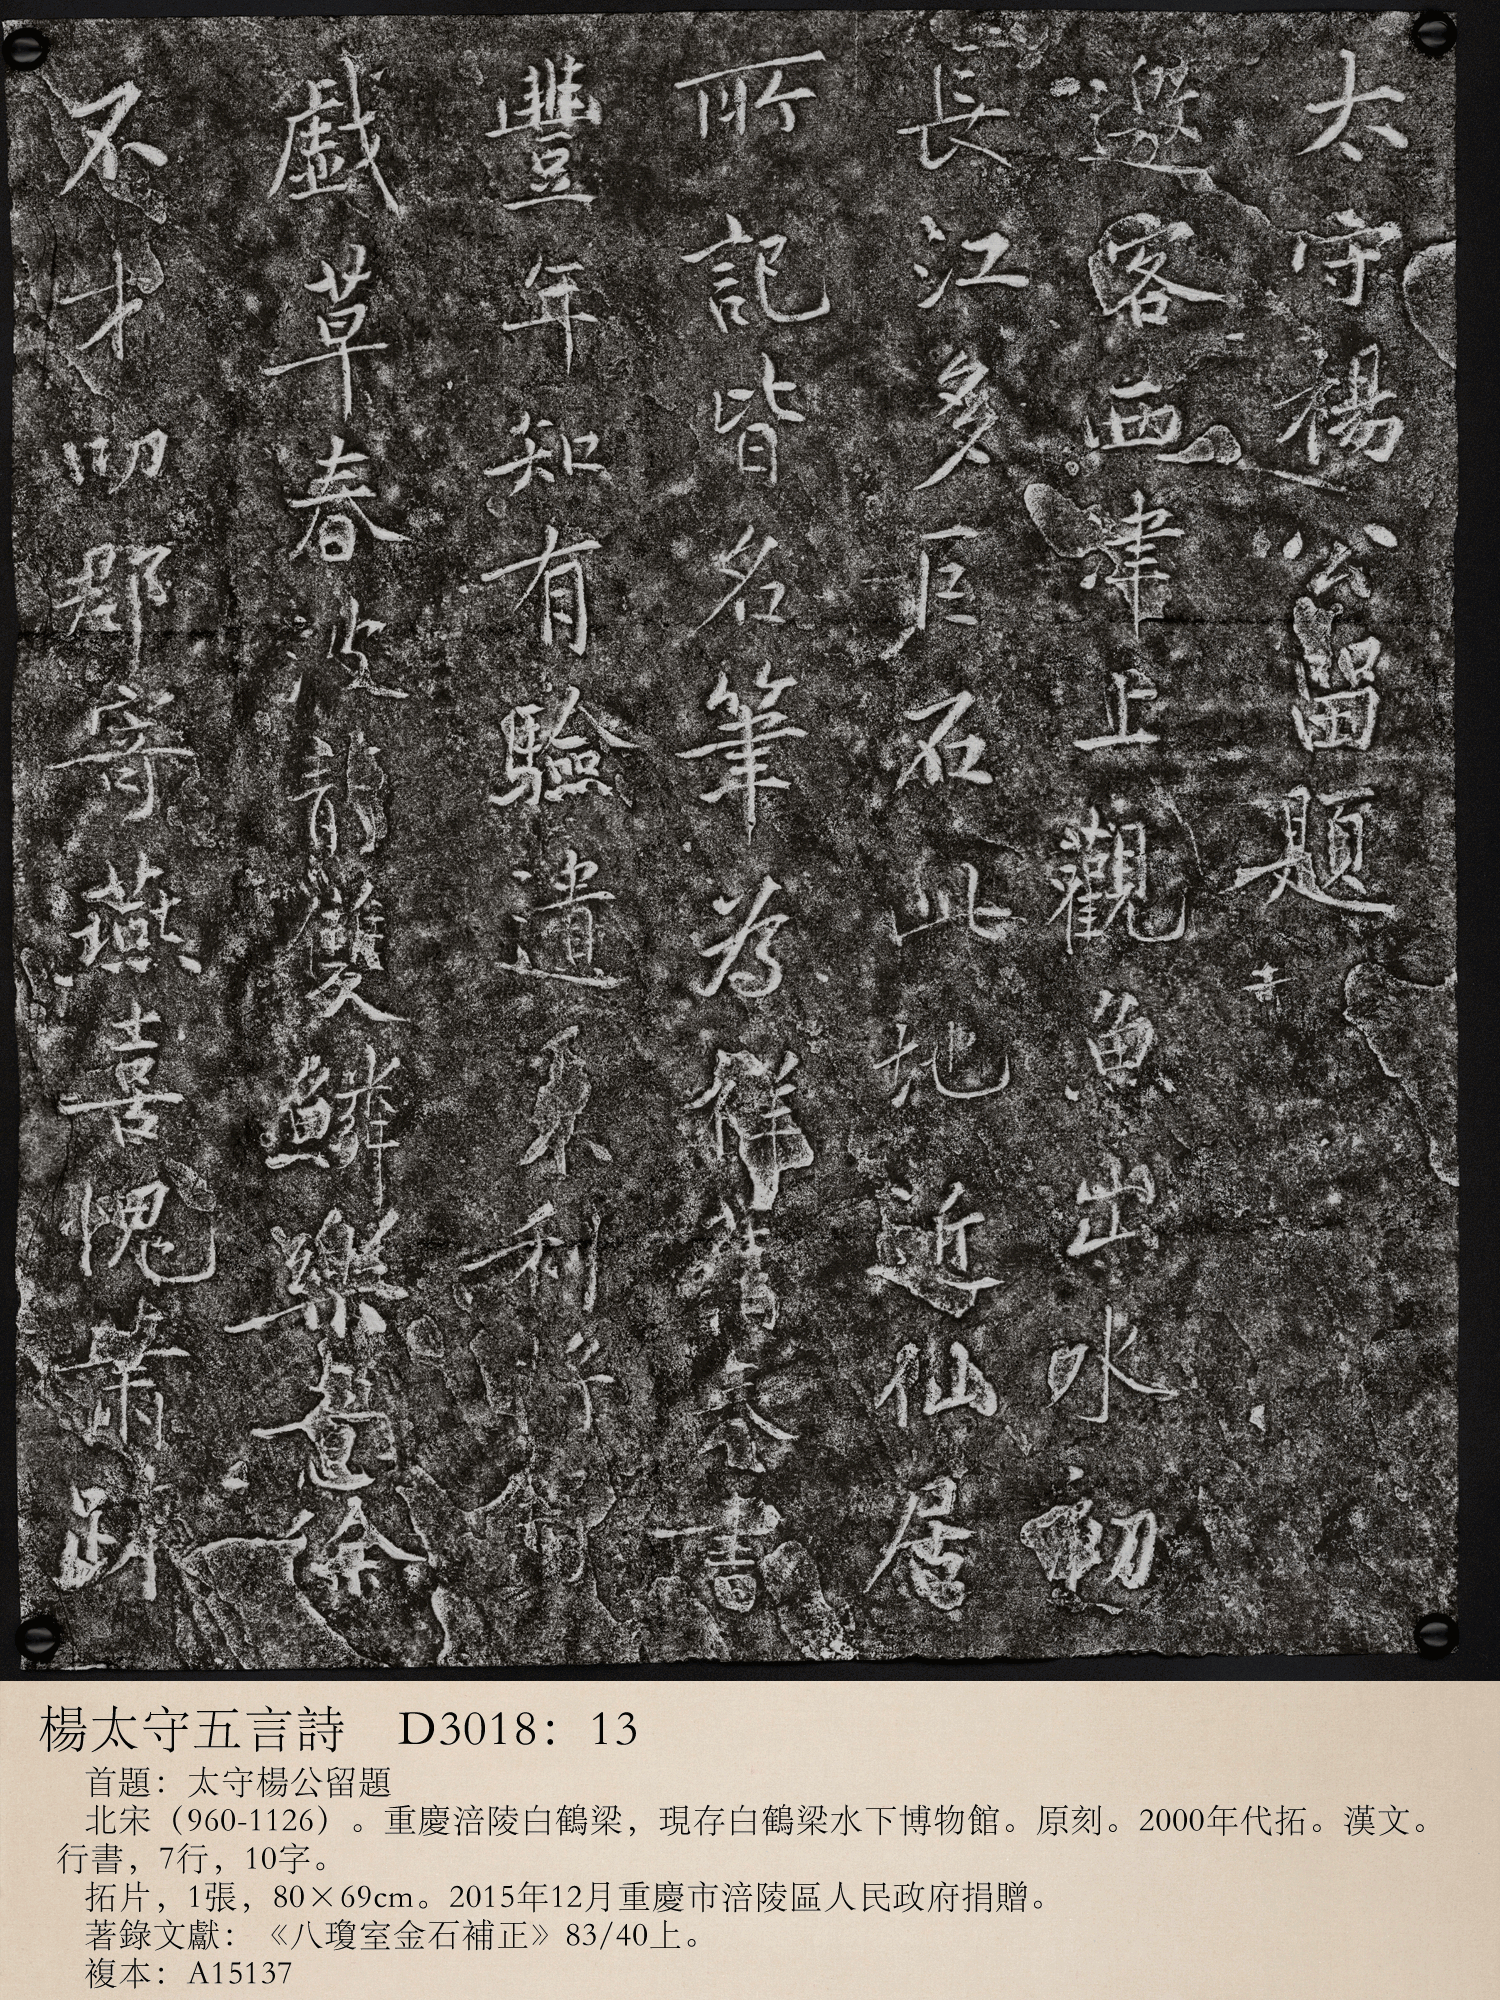 太守楊公留題
邀客西津上觀魚出水初
長江多巨石此地近仙居
所記皆名筆為祥旧奏書
豐年知有驗遺秉利將
戲草春波靜雙鱗樂意徐
不才叨郡寄燕喜愧蕭踈
楊太守五言詩 D3018：13
首題：太守楊公留題
北宋（960-1126）。重慶涪陵白鶴梁，現存白鶴梁水下博物館。原刻。2000年代拓。漢文。
行書，7行，10字。
拓片，1張，80×69cm。2015年12月重慶市涪陵區人民政府捐贈。
著錄文獻：《八瓊室金石補正》83/40上。
複本：A15137